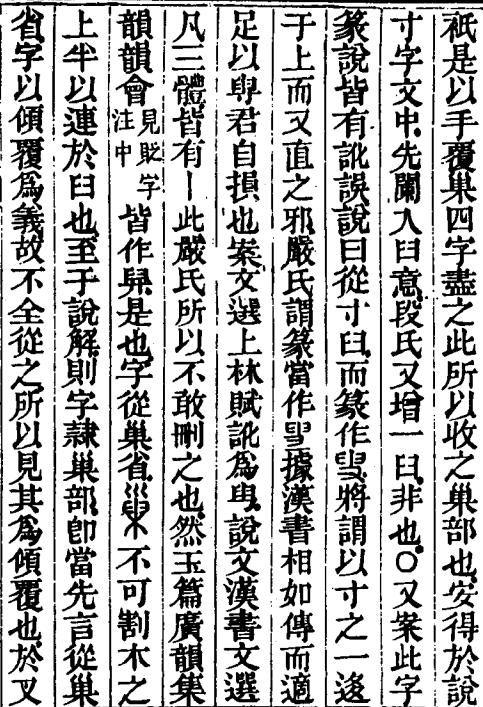 祇是以手覆巢四字盡之此所以收之巢部也安得於說
寸字文中先闌入臼意段氏又增一臼非也○又案此字
篆說皆有訛誤說曰從寸臼而篆作將謂以寸之一迻
于上而又直之邪嚴氏謂篆當作據漢書相如傳而適
足以㝵君自損也案文選上林賦訛爲說文漢書文選
凡三體皆有丨此嚴氏所以不敢刪之也然玉篇廣韻集
韻韻會見貶字注中皆作是也字從巢省巢不可割木之
上半以連於臼也至于說解則字隸巢部卽當先言從巢
省字以傾覆爲義故不全從之所以見其爲傾覆也於又